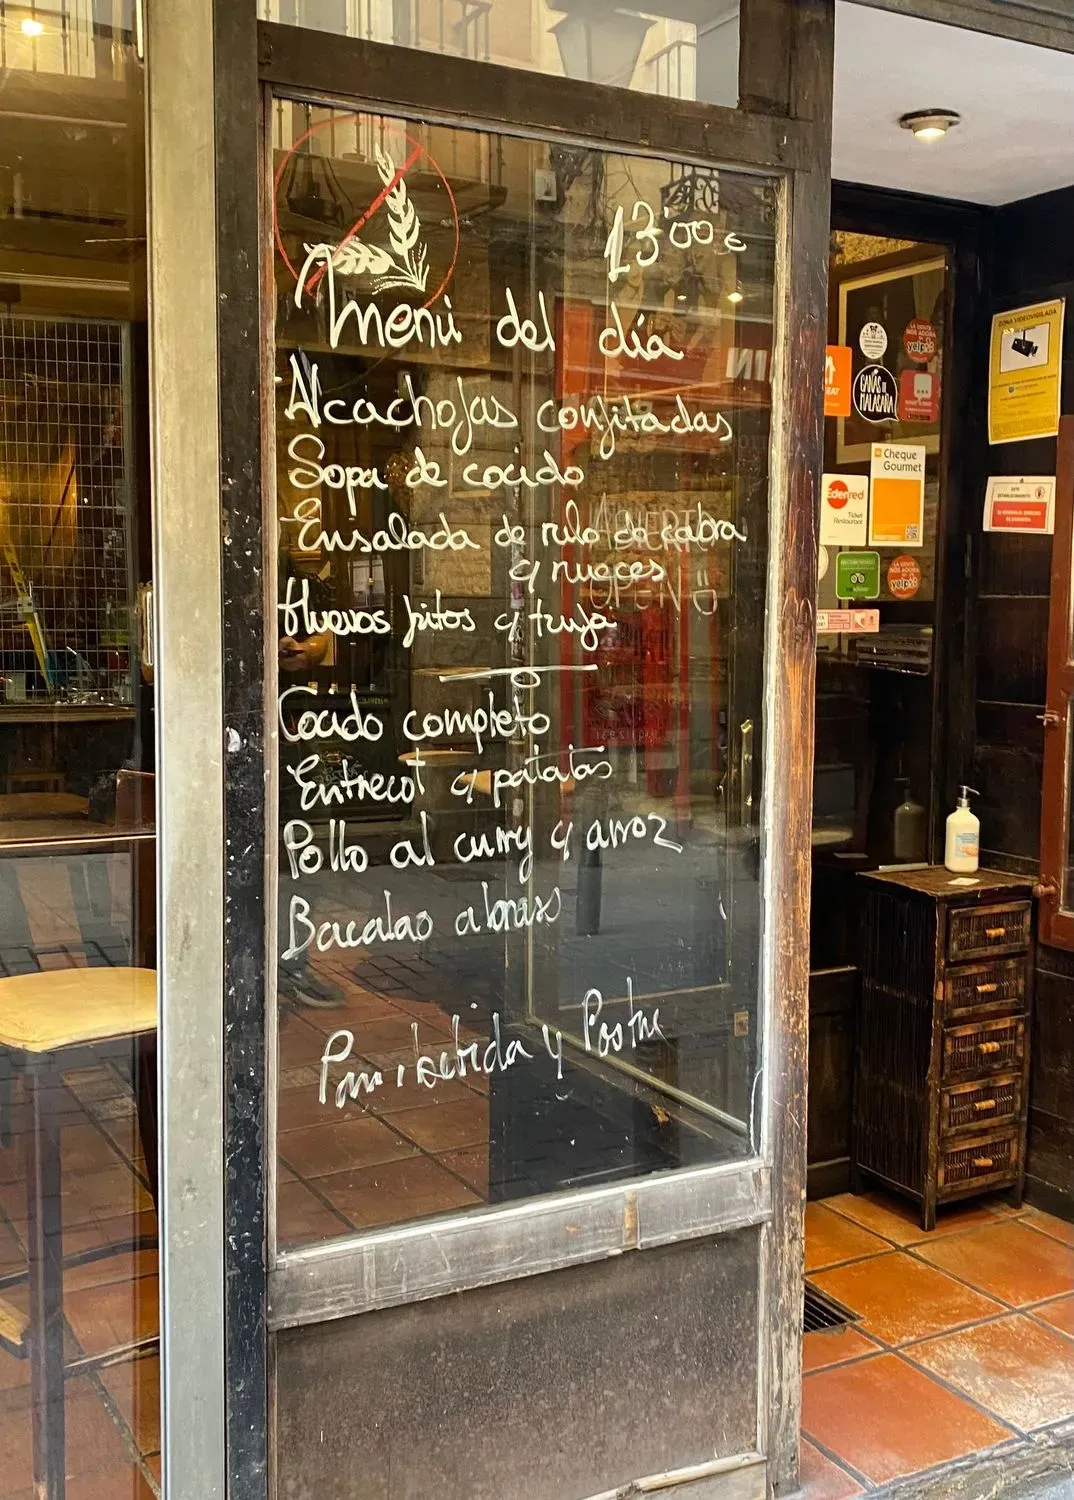 13'00 €
Menú del día
Alcachofas confitadas
Sopa de cocido
Ensalada de rulo de cabra
y nueces
Huevos fritos y trufa
Cocido completo
Entrecot y patatas
Pollo al curry y arroz
Bacalao a bras
Pan, bebida y Postre
OPEN
ZONA VIDEOVIGILADA
LA GENTE
NOS ADORA
yelp
GANAS DE
MALASAÑA
Cheque
Gourmet
Edenred
Ticket
Restaurant
LA GENTE
NOS ADORA
yelp